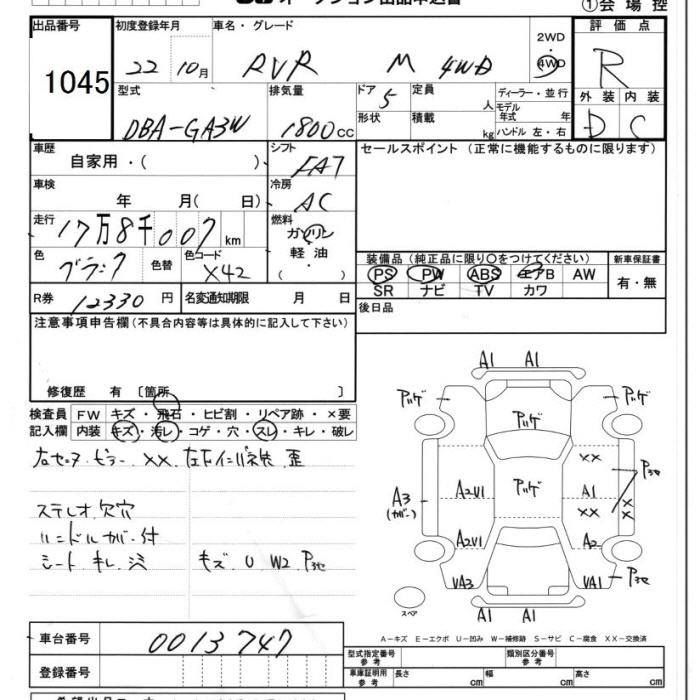 オークション出品申込書
①会場控
出品番号 初度登録年月 車名・グレード 2WD 評価点
1045 22 10月 RVR M 4WD ・ 4WD R
型式 排気量 ドア 定員 ディーラー・並行 外装 内装
DBA-GA3W 1800cc 5 人 モデル年式 年 D C
形状 積載 kg ハンドル 左・右
車歴 シフト セールスポイント (正常に機能するものに限ります)
自家用・( ) FAT
車検 冷房
年 月( 日) AC
走行 燃料
17万8千007km ガソリン
色 色替 色コード 軽油 装備品(純正品に限り○をつけてください) 新車保証書
ブラック X42 ・( ) PS PW ABS エアB AW 有・無
SR ナビ TV カワ
R券 12330円 名変通知期限 月 日 後日品
注意事項申告欄(不具合内容等は具体的に記入して下さい)
修復歴 有〔箇所 〕
検査員 FW キズ・飛石・ヒビ割・リペア跡・×要
記入欄 内装 キズ・汚レ・コゲ・穴・スレ・キレ・破レ
右センタ.ピラー XX. 歪
ステレオ.欠穴
ハンドルカバー.付
シート.キレ.シミ キズ U W2
A1 A1
アッゲ アッゲ
アッゲ
XX
A3 (カバー) A2V1 アッゲ A1
XX X
X
A2V1 A2
VA3 VA1
スペア A1 A1
A-キズ E-エクボ U-凹み W-補修跡 S-サビ C-腐食 XX-交換済
車台番号 0013747
型式指定番号 参考 類別区分番号 参考
登録番号 車庫証明用 参考 長さ cm 幅 cm 高さ cm